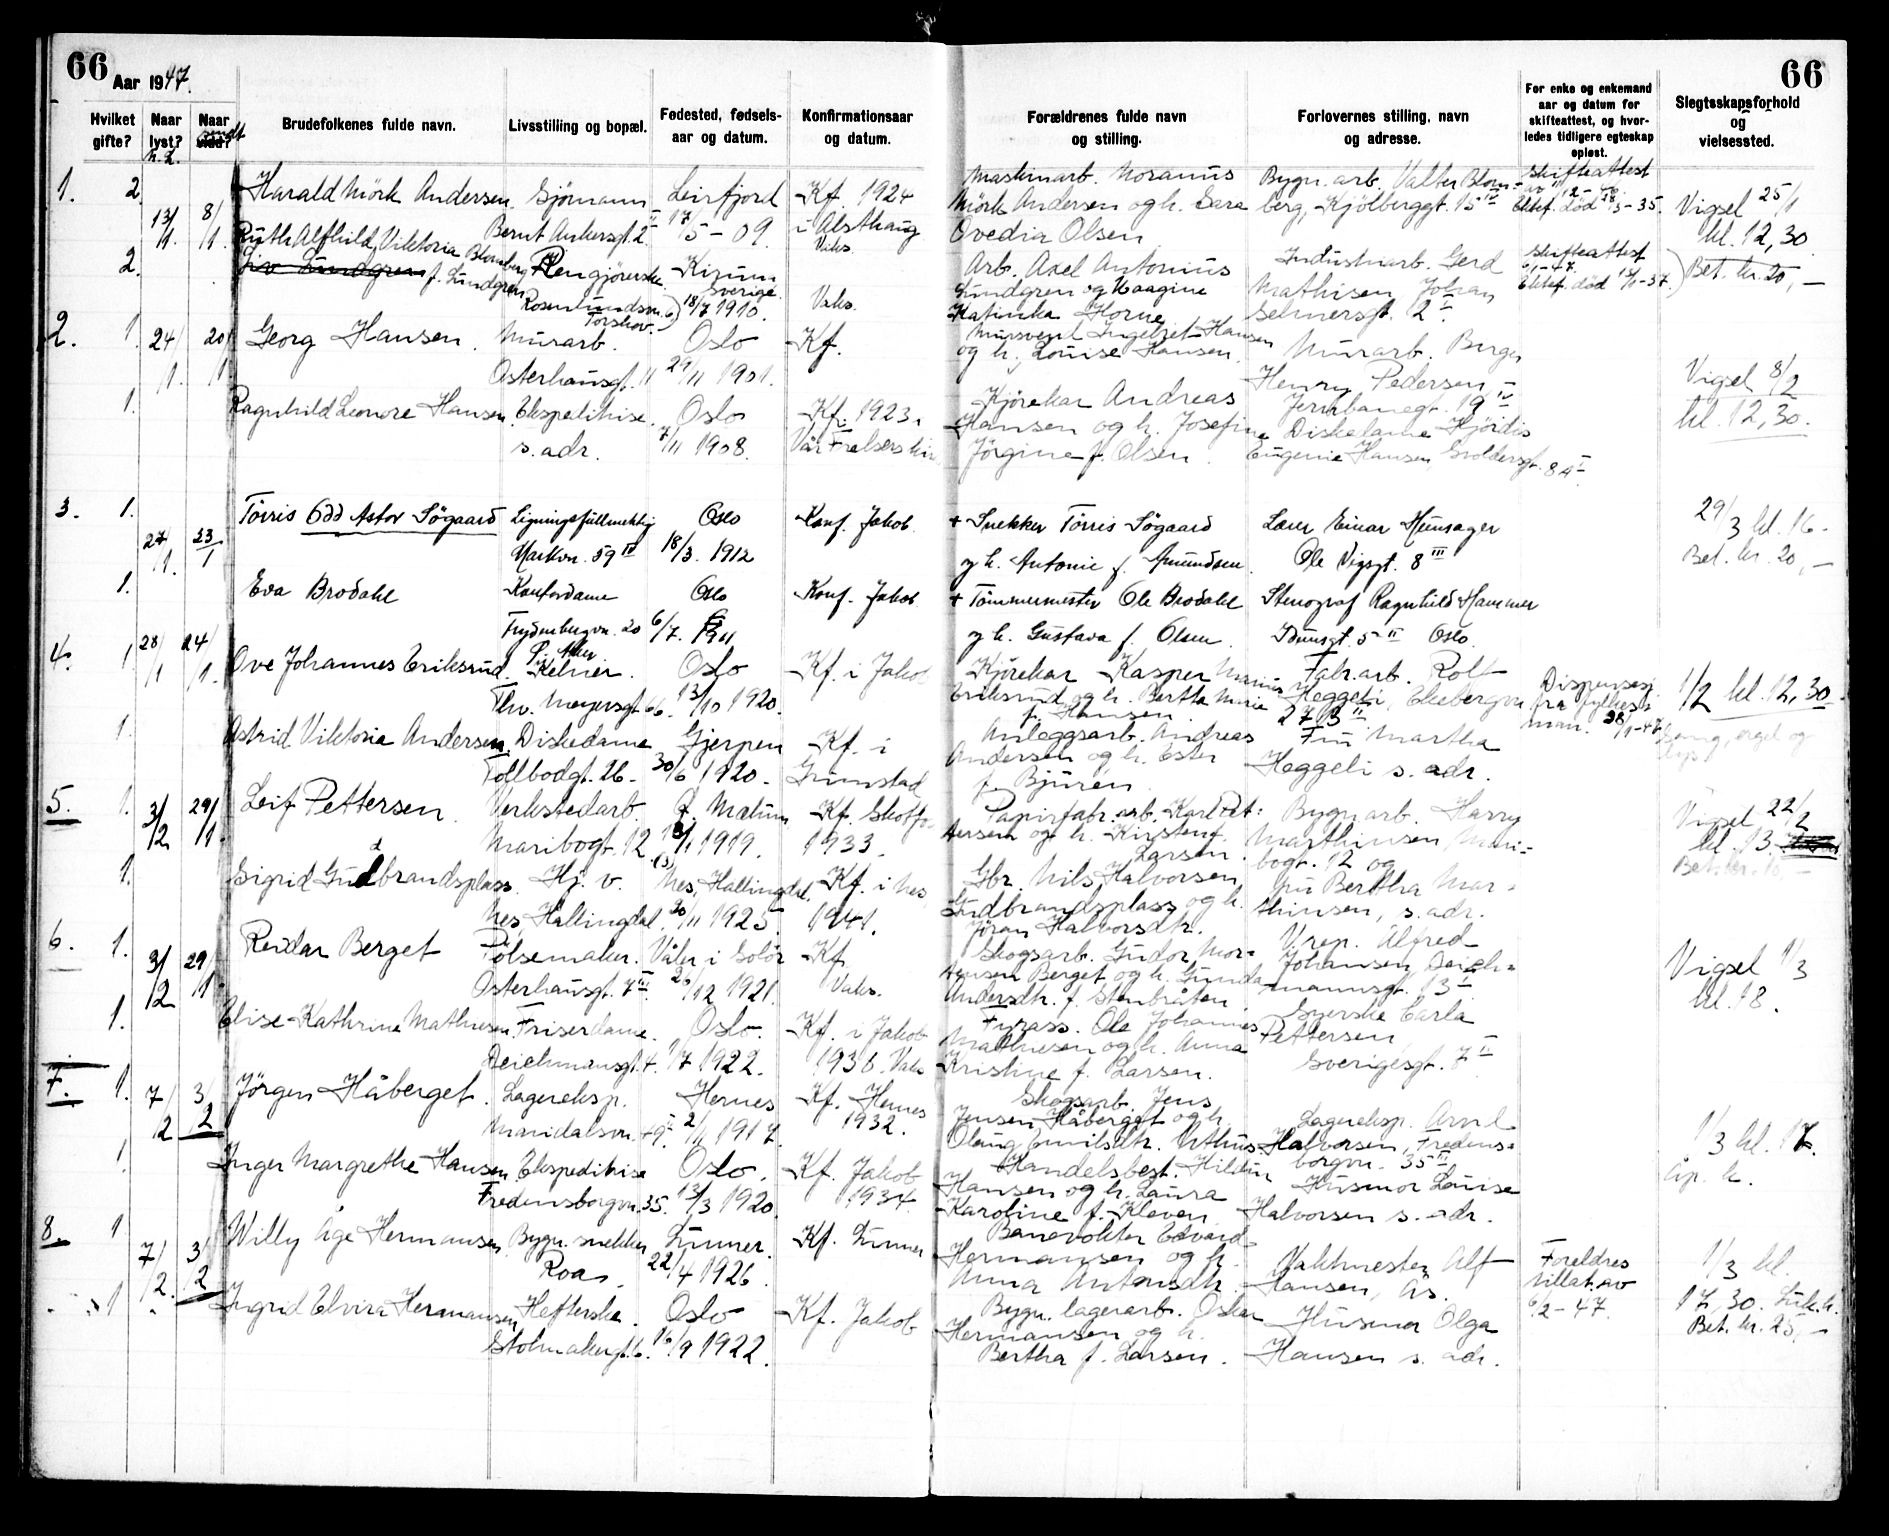 66
Aar 1947.
66
Hvilket gifte?
Naar lyst?
Naar vidd?
Brudefolkenes fulde navn.
Livsstilling og bopæl.
Fødested, fødsels- aar og datum.
Konfirmationsaar og datum.
Forældrenes fulde navn og stilling.
Forlovernes stilling, navn og adresse.
For enke og enkemand aar og datum for skifteattest, og hvor- ledes tidligere egteskap opløst.
Slegtsskapsforhold og vielsessted.
1. 2 13/1. 8/1. Harald Mörk Andersen. Sjömann Leirfjord Kf. 1924
Bernt Ankersgt. 2 17/5-09. i Alsthaug Vaks.
Mörk Andersen og h. Sara Ovedia Olsen
Bygn.arb. Valter Blom- berg, Kjölberggt. 15 IV
Skifteattest
Vigsel 25/1 kl. 12,30.
2. Ruth Alfhild Viktoria Blomberg f. Lundgren Rengjörerske. Kiruna Sverige 18/7 1910. Vaks.
Torshov.
Arb. Axel Antonius Lundgren og Haagine Katinka Horne
Industriarb. Gerd Mathisen Johan Selmersgt. 2 I.
Skifteattest
Bet. kr. 20,-
2. 1. 24/1. 20/1. Georg Hansen. Murarb. Oslo Kf.
Osterhausgt. 11 29/11 1901.
og h. Louise Hansen.
Murarb. Birger Henry Pedersen, Jernbanegt. 19 IV
Vigsel 8/2 kl. 12,30.
1. Ragnhild Leonore Hansen. Ekspeditrise. Oslo Kf. 1923.
s. adr. 7/11 1908. Vår Frelsers kir
Kjörekar Andreas Hansen og h. Josefine Jörgine f. Olsen.
Diskedame Hjördis Eugenie Hansen
3. 1. 27/1. 23/1 Törris Odd Astor Sögaard Ligningsfullmektig Oslo Konf. Jakob
Markvn. 59 IV 18/3. 1912
+ Snekker Törris Sögaard og h. Antonie f. Amundsen.
Lærer Einar Hunsager Ole Vigsgt. 8 III
29/3 kl. 16- Bet. kr. 20,-
1. Eva Brodahl Kontordame Oslo Konf. Jakob
Frydenbergvn. 20 6/7. 1911
+ Tömmermester Ole Brodahl og h. Gustava f. Olsen
Stenograf Ragnhild Hammer Idunsgt. 5 II Oslo.
4. 1 28/1 24/1. Ove Johannes Eriksrud. Kelner. Oslo Kf. i Jakob
Thv. Meyersgt. 66. 13/10 1920.
Kjörekar Kasper Marius Eriksrud og h. Bertha Marie f. Hansen.
Fabr.arb. Rolf Heggeli, Ekebergvn
Dispensasj. fra fylkes- man. 28/1-47
1/2 kl. 12,30.
1. Astrid Viktoria Andersen. Diskedame Gjerpen Kf. i Grimstad
Tollbodgt. 26. 30/6 1920.
Anleggsarb. Andreas Andersen og h. Ester f. Bjuren.
Fru Martha Heggeli s. adr.
5. 1. 3/2 29/1. Leif Pettersen. Verkstedarb. Kf. Skotfo.
Maribogt. 12 1919. 1933.
Papirfabr.arb. Karl Pet- tersen og h. Kirsten f. Larsen.
Bygn.arb. Harry Marthinsen Mari- bogt. 12 og
Vigsel 22/2 kl. 13.
1. Sigrid Gudbrandsplass. Hj. v. Nes, Hallingdal. Kf. i Nes,
Nes, Hallingdal. 30/11 1925. 1941.
Gbr. Nils Halvorsen Gudbrandsplass og h. Jöran Halvorsdtr.
fru Bertha Mar- thinsen, s. adr.
6. 1. 3/2 29/1. Reidar Berget Pölsemaker. Våler i Solör Kf. Vaks.
Osterhausgt. 7 III. 26/12 1921.
Skogsarb. Gudor Mor- tensen Berget og h. Gunda Andersdtr. f. Stenbråten
V.rep. Alfred Johansen, Deich- mannsgt. 13
Vigsel 1/3 kl. 18.
1. Elise Kathrine Mathiesen. Friserdame. Oslo. Kf. i Jakob
Deichmansgt. 4. 1/7 1922. 1936. Vaks
Fyrass. Ole Johannes Mathiesen og h. Anna Kristine f. Larsen.
Syerske Carla Pettersen Sverigesgt. 7 II
7. 1. 7/2 3/2 Jörgen Håberget. Lagereksp. Hernes Kf. Hernes
Maridalsvn. 49 I. 2/11 1917. 1932.
Skogsarb. Jens Jensen Håberget og h.
Lagereksp. Arvid Halvorsen, Fredens- borgvn. 35 III
1/3 kl. 17.
1. Inger Margrethe Hansen. Ekspeditrise Oslo. Kf. Jakob
Fredensborgvn. 35. 13/3 1920. 1934
Handelsbest. Hansen og h. Laura Karoline f. Kleven
Husmor Louise Halvorsen s. adr.
8. 1 7/2. 3/2 Willy Åge Hermansen. Bygn. snekker Lunner. Kf. Lunner
Roa. 22/4 1926.
Banevokter Edvard Hermansen og h. Anna Antonsdtr.
Vaktmester Alf Hansen, Ås.
Foreldres tillat. av 6/2-47.
1/3 kl. 17,30. Bet. kr. 25,-
1 Ingrid Elvira Hermansen Hefterske. Oslo Kf. Jakob
Stolmakergt. 6. 16/9 1922.
Bygn. lagerarb. Oskar Hermansen og h. Bertha f. Larsen.
Husmor Olga Hansen s. adr.